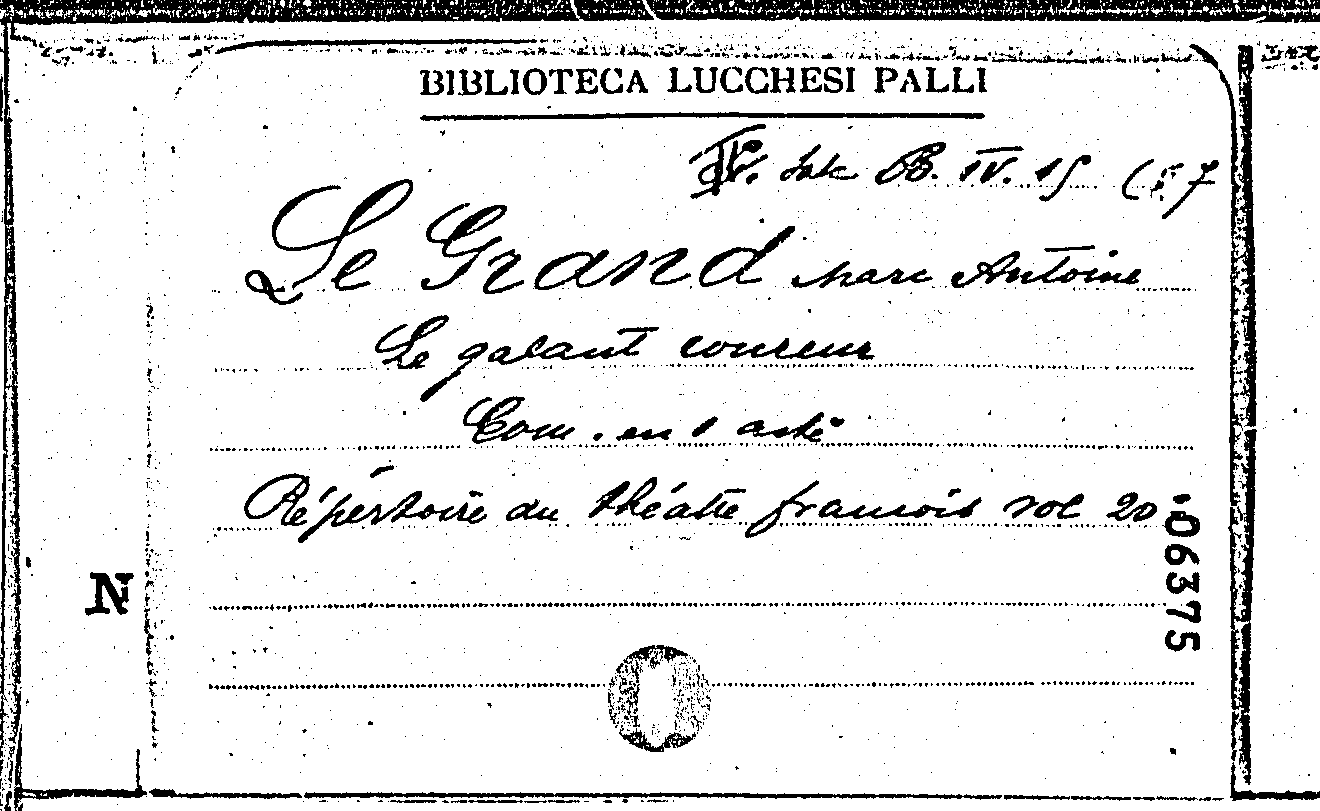 BIBLIOTECA LUCCHESI PALLI
B. IV. 15
Le Grand Marc Antoine
Le galant coureur
Com. en 1 acte
Répertoire du théatre francois vol 20
06375
N